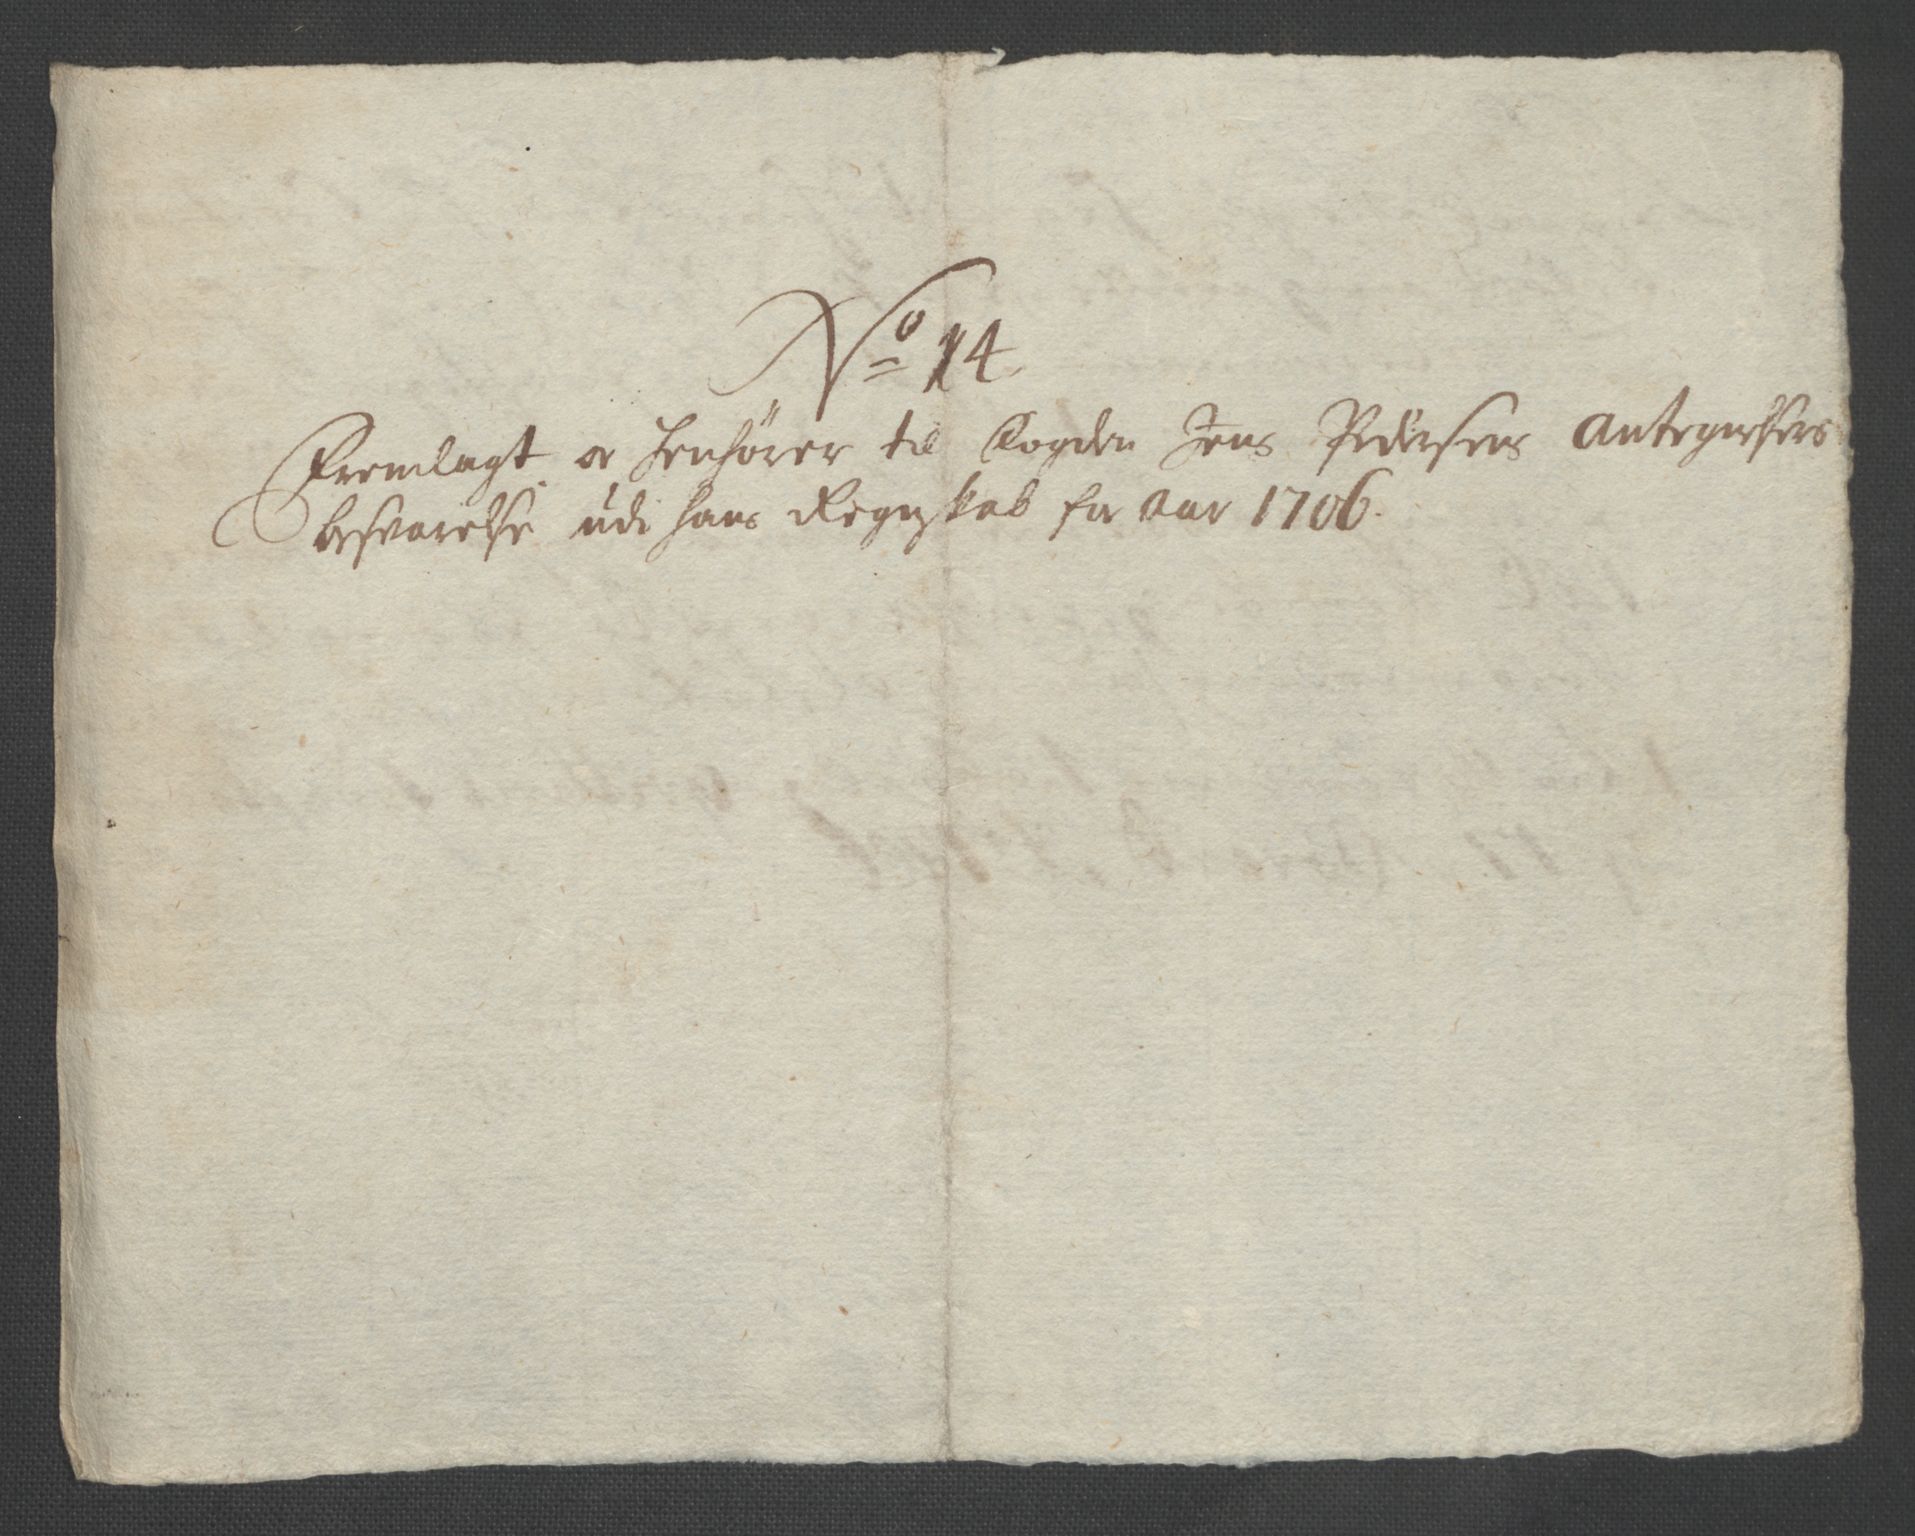 No 14
Fremlagt oc henhører til Fogden Jens Pedersens Antegnelsers
besvarelse udi hans Regnskab for Aar 1706.